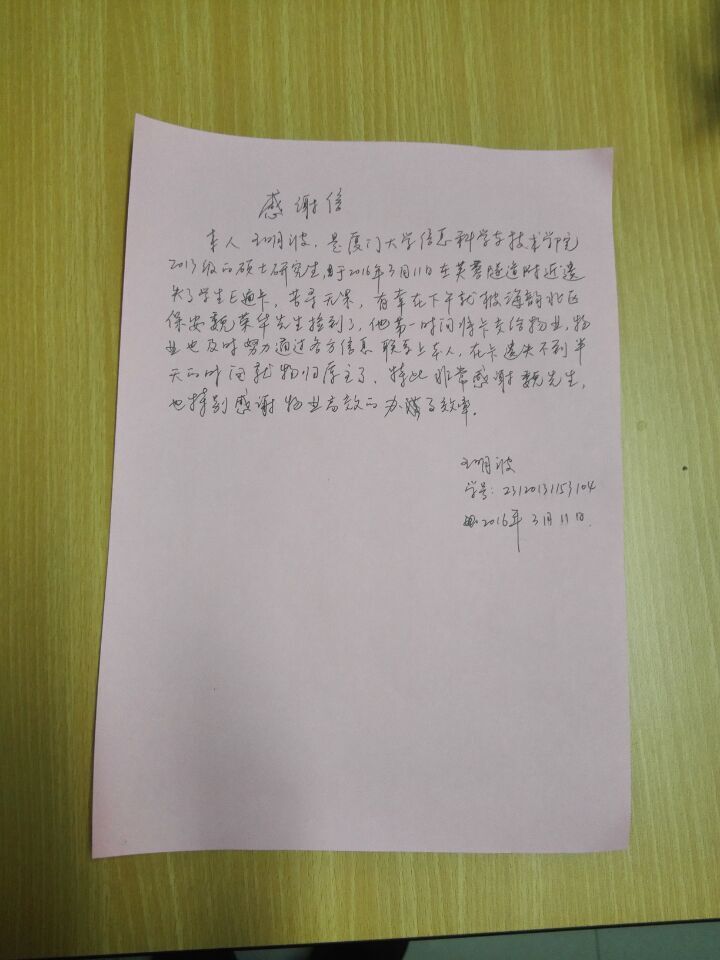 感谢信
本人王明波,是厦门大学信息科学与技术学院
2013级的硕士研究生,由于2016年3月11日在芙蓉隧道附近遗
失了学生E通卡,苦寻无果,有幸在下午就被海韵北区
保安魏荣华先生捡到了,他第一时间将卡交给物业,物
业也及时努力通过各方信息联系上本人,在卡遗失不到半
天的时间就物归原主了,特此非常感谢魏先生,
也特别感谢物业高效的办事效率。
王明波
学号:23120131153104
2016年3月11日.